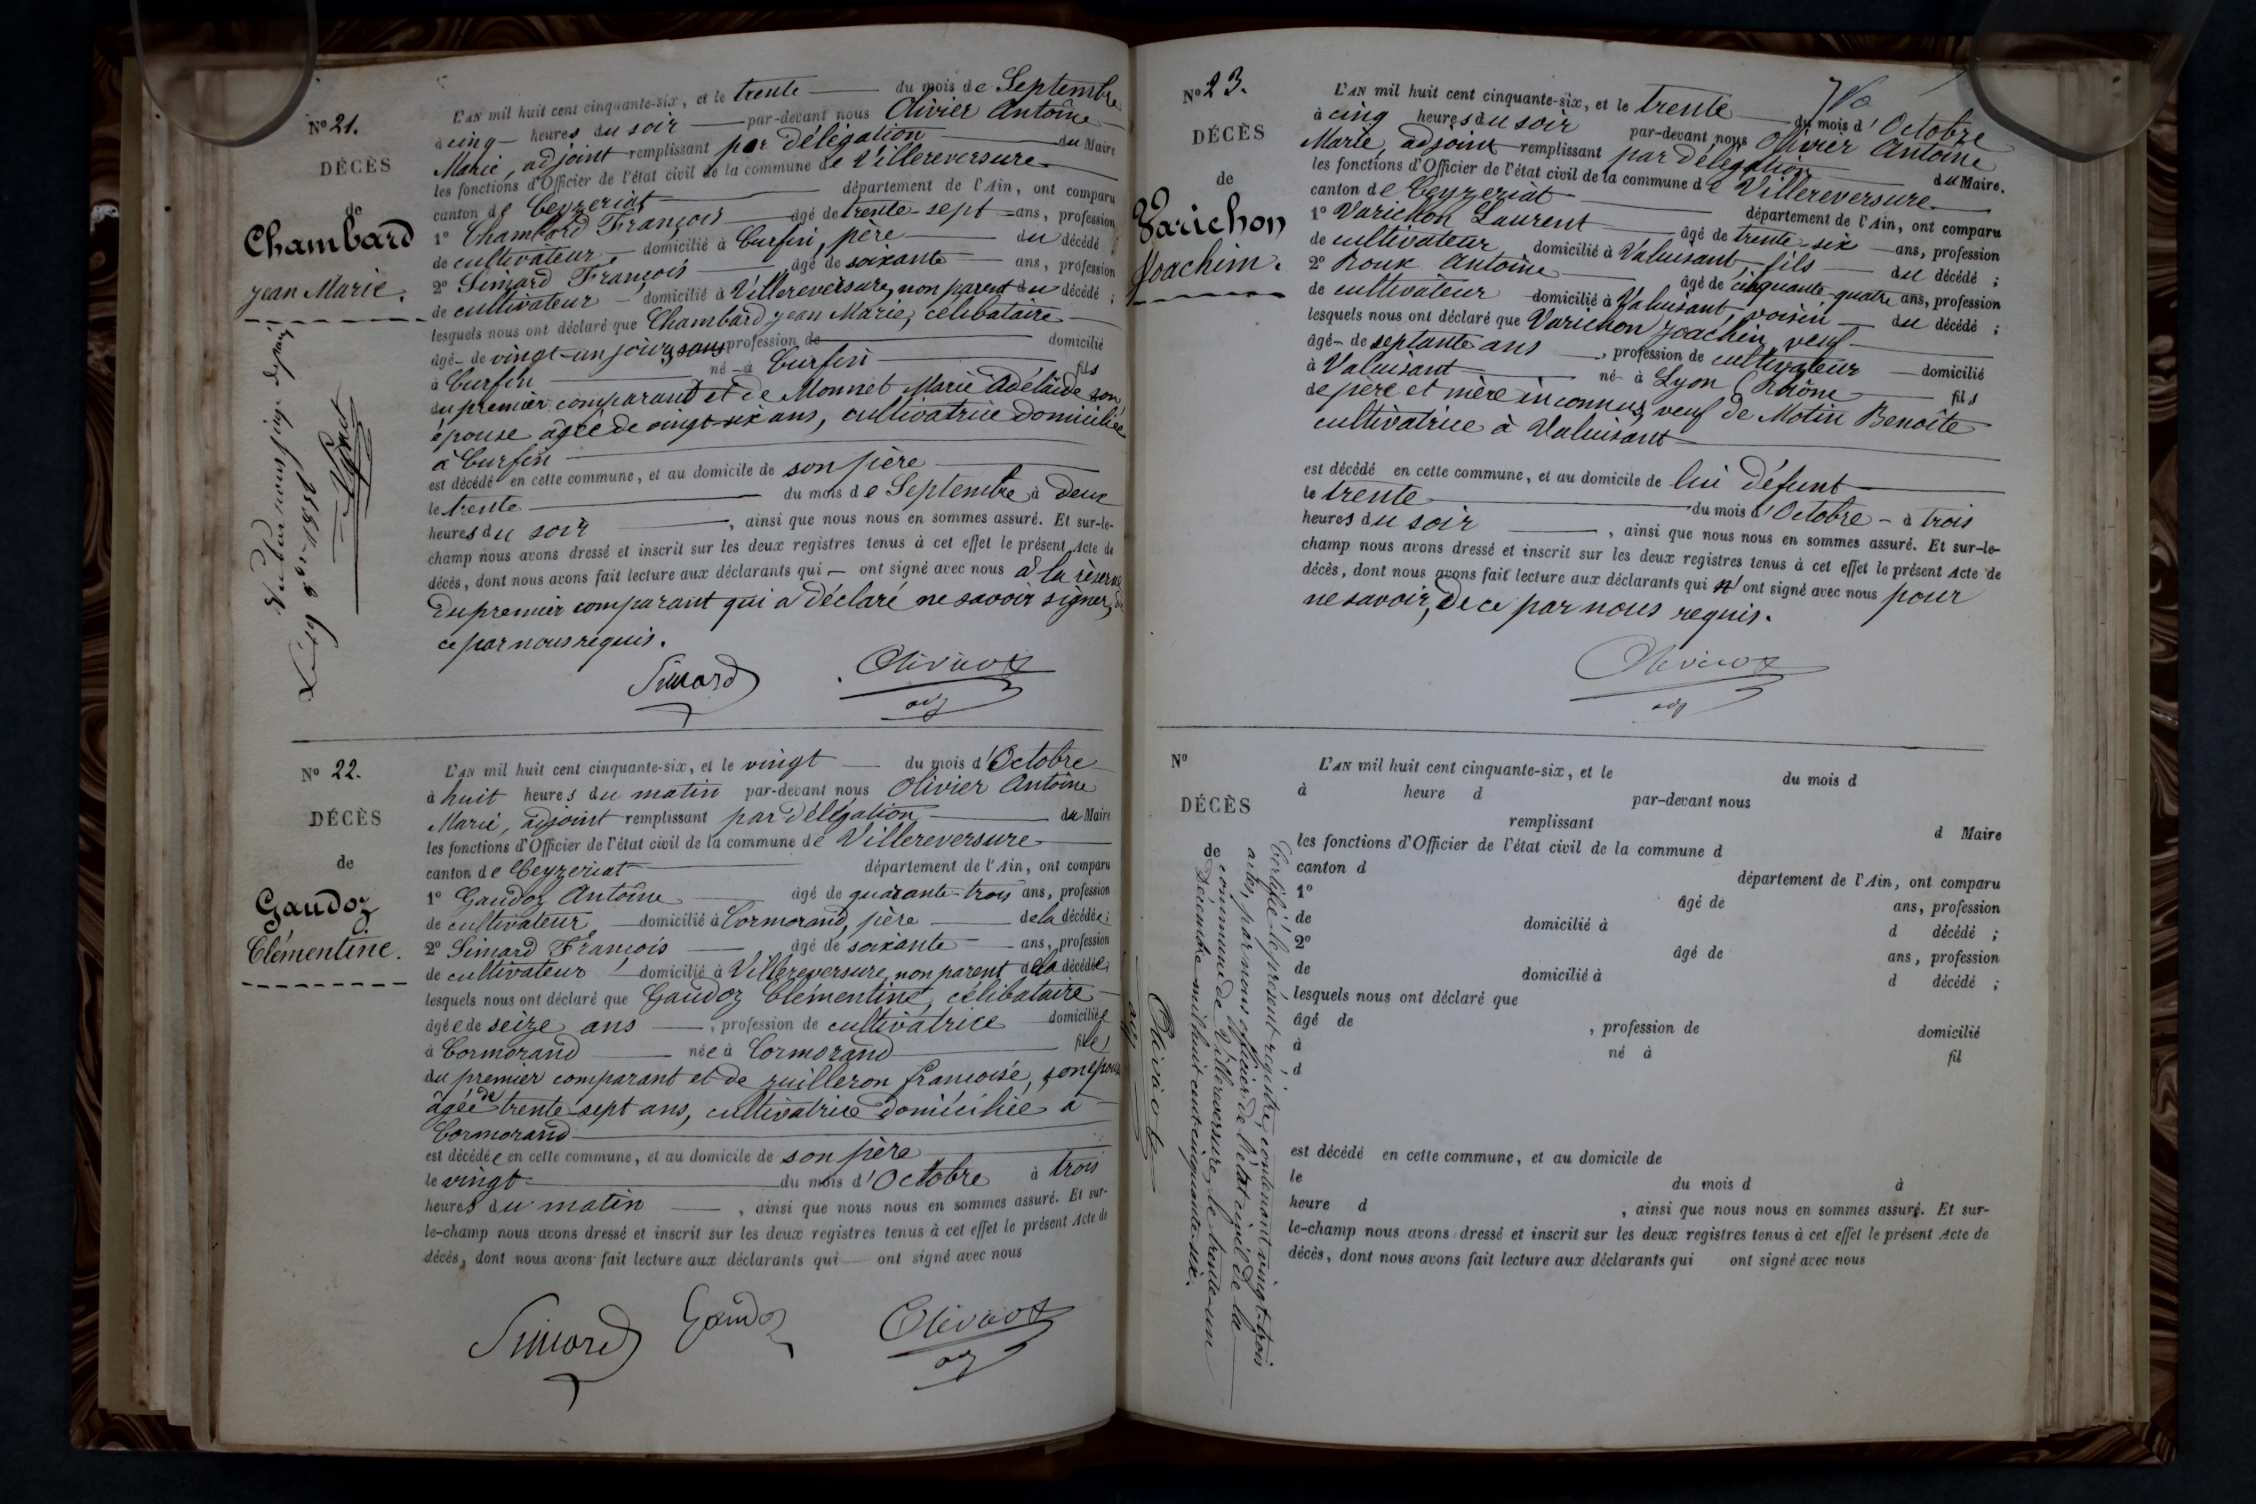 N° 21.
DÉCÈS
de
Chambard
Jean Marie.
L'AN mil huit cent cinquante-six, et le trente du mois de Septembre
à cinq heures du soir par-devant nous Olivier Antoine
Marie, adjoint remplissant par délégation du Maire
les fonctions d'Officier de l'état civil de la commune de Villereversure
canton de Ceyzeriat département de l'Ain, ont comparu
1° Chambard François âgé de trente-sept ans, profession
de cultivateur domicilié à Curfin, père du décédé ;
2° Simard François âgé de soixante ans, profession
de cultivateur domicilié à Villereversure, non parent du décédé ;
lesquels nous ont déclaré que Chambard Jean Marie, célibataire
âgé de vingt-un jours, sans profession de domicilié
à Curfin né à Curfin fils
du premier comparant et de Monnet Marie Adélaïde son
épouse âgée de vingt-six ans, cultivatrice domiciliée
à Curfin
est décédé en cette commune, et au domicile de son père
le trente du mois de Septembre à deux
heures du soir , ainsi que nous nous en sommes assuré. Et sur-le-
champ nous avons dressé et inscrit sur les deux registres tenus à cet effet le présent Acte de
décès, dont nous avons fait lecture aux déclarants qui ont signé avec nous à la réserve
du premier comparant qui a déclaré ne savoir signer, de
ce par nous requis.
Simard Olivier
adj
Vu par nous juge de paix
Le 19 8bre 1856
N° 22.
DÉCÈS
de
Gaudoz
Clémentine.
L'AN mil huit cent cinquante-six, et le vingt du mois d'Octobre
à huit heures du matin par-devant nous Olivier Antoine
Marie, adjoint remplissant par délégation du Maire
les fonctions d'Officier de l'état civil de la commune de Villereversure
canton de Ceyzeriat département de l'Ain, ont comparu
1° Gaudoz Antoine âgé de quarante-trois ans, profession
de cultivateur domicilié à Cormorand, père de la décédée ;
2° Simard François âgé de soixante ans, profession
de cultivateur domicilié à Villereversure, non parent de la décédée ;
lesquels nous ont déclaré que Gaudoz Clémentine, célibataire
âgée de seize ans , profession de cultivatrice domiciliée
à Cormorand née à Cormorand fille
du premier comparant et de Juilleron françoise, son épouse
âgée de trente-sept ans, cultivatrice domiciliée à
Cormorand
est décédée en cette commune, et au domicile de son père
le vingt du mois d'Octobre à trois
heures du matin , ainsi que nous nous en sommes assuré. Et sur-
le-champ nous avons dressé et inscrit sur les deux registres tenus à cet effet le présent Acte de
décès, dont nous avons fait lecture aux déclarants qui ont signé avec nous
Simard Gaudoz Olivier
adj
N° 23.
DÉCÈS
de
Varichon
Joachim.
L'AN mil huit cent cinquante-six, et le trente du mois d'Octobre
à cinq heures du soir par-devant nous Olivier Antoine
Marie, adjoint remplissant par délégation du Maire.
les fonctions d'Officier de l'état civil de la commune de Villereversure
canton de Ceyzeriat département de l'Ain, ont comparu
1° Varichon Laurent âgé de trente-six ans, profession
de cultivateur domicilié à Valuisant, fils du décédé ;
2° Roux Antoine âgé de cinquante-quatre ans, profession
de cultivateur domicilié à Valuisant, voisin du décédé ;
lesquels nous ont déclaré que Varichon Joachim, veuf
âgé de septante ans , profession de cultivateur domicilié
à Valuisant né à Lyon (Rhône fils
de père et mère inconnus, veuf de Motin Benoîte
cultivatrice à Valuisant
est décédé en cette commune, et au domicile de lui défunt
le trente du mois d'Octobre à trois
heures du soir , ainsi que nous nous en sommes assuré. Et sur-le-
champ nous avons dressé et inscrit sur les deux registres tenus à cet effet le présent Acte de
décès, dont nous avons fait lecture aux déclarants qui n'ont signé avec nous pour
ne savoir, de ce par nous requis.
Olivier
adj
N°
DÉCÈS
de
L'AN mil huit cent cinquante-six, et le du mois d
à heure d par-devant nous
remplissant d Maire
les fonctions d'Officier de l'état civil de la commune d
canton d département de l'Ain, ont comparu
1° âgé de ans, profession
de domicilié à d décédé ;
2° âgé de ans, profession
de domicilié à d décédé ;
lesquels nous ont déclaré que
âgé de , profession de domicilié
à né à fil
d
est décédé en cette commune, et au domicile de
le du mois d à
heure d , ainsi que nous nous en sommes assuré. Et sur-
le-champ nous avons dressé et inscrit sur les deux registres tenus à cet effet le présent Acte de
décès, dont nous avons fait lecture aux déclarants qui ont signé avec nous
Certifié le présent registre, contenant vingt-trois
actes, par nous officier de l'état civil de la
commune de Villereversure, le trente-un
Décembre mil huit cent cinquante-six.
Olivier
adj